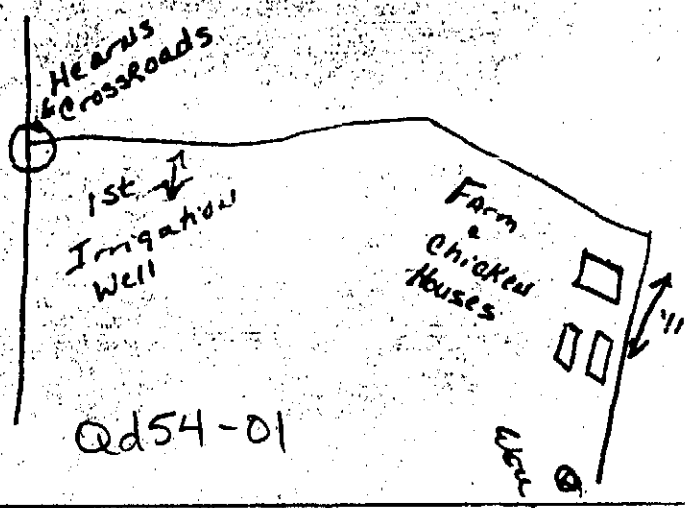 Hearns
& CrossRoads
1st
Irrigation
Well
Farm
&
Chicken
Houses
Well
Qd54-01